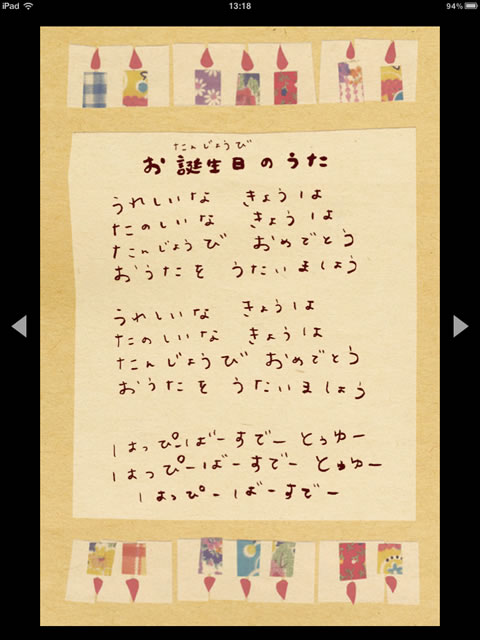 iPad 13:18 94%
たんじょうび
お誕生日のうた
うれしいな きょうは
たのしいな きょうは
たんじょうび おめでとう
おうたを うたいましょう
うれしいな きょうは
たのしいな きょうは
たんじょうび おめでとう
おうたを うたいましょう
はっぴーばーすでー とぅゆー
はっぴーばーすでー とぅゆー
はっぴーばーすでー